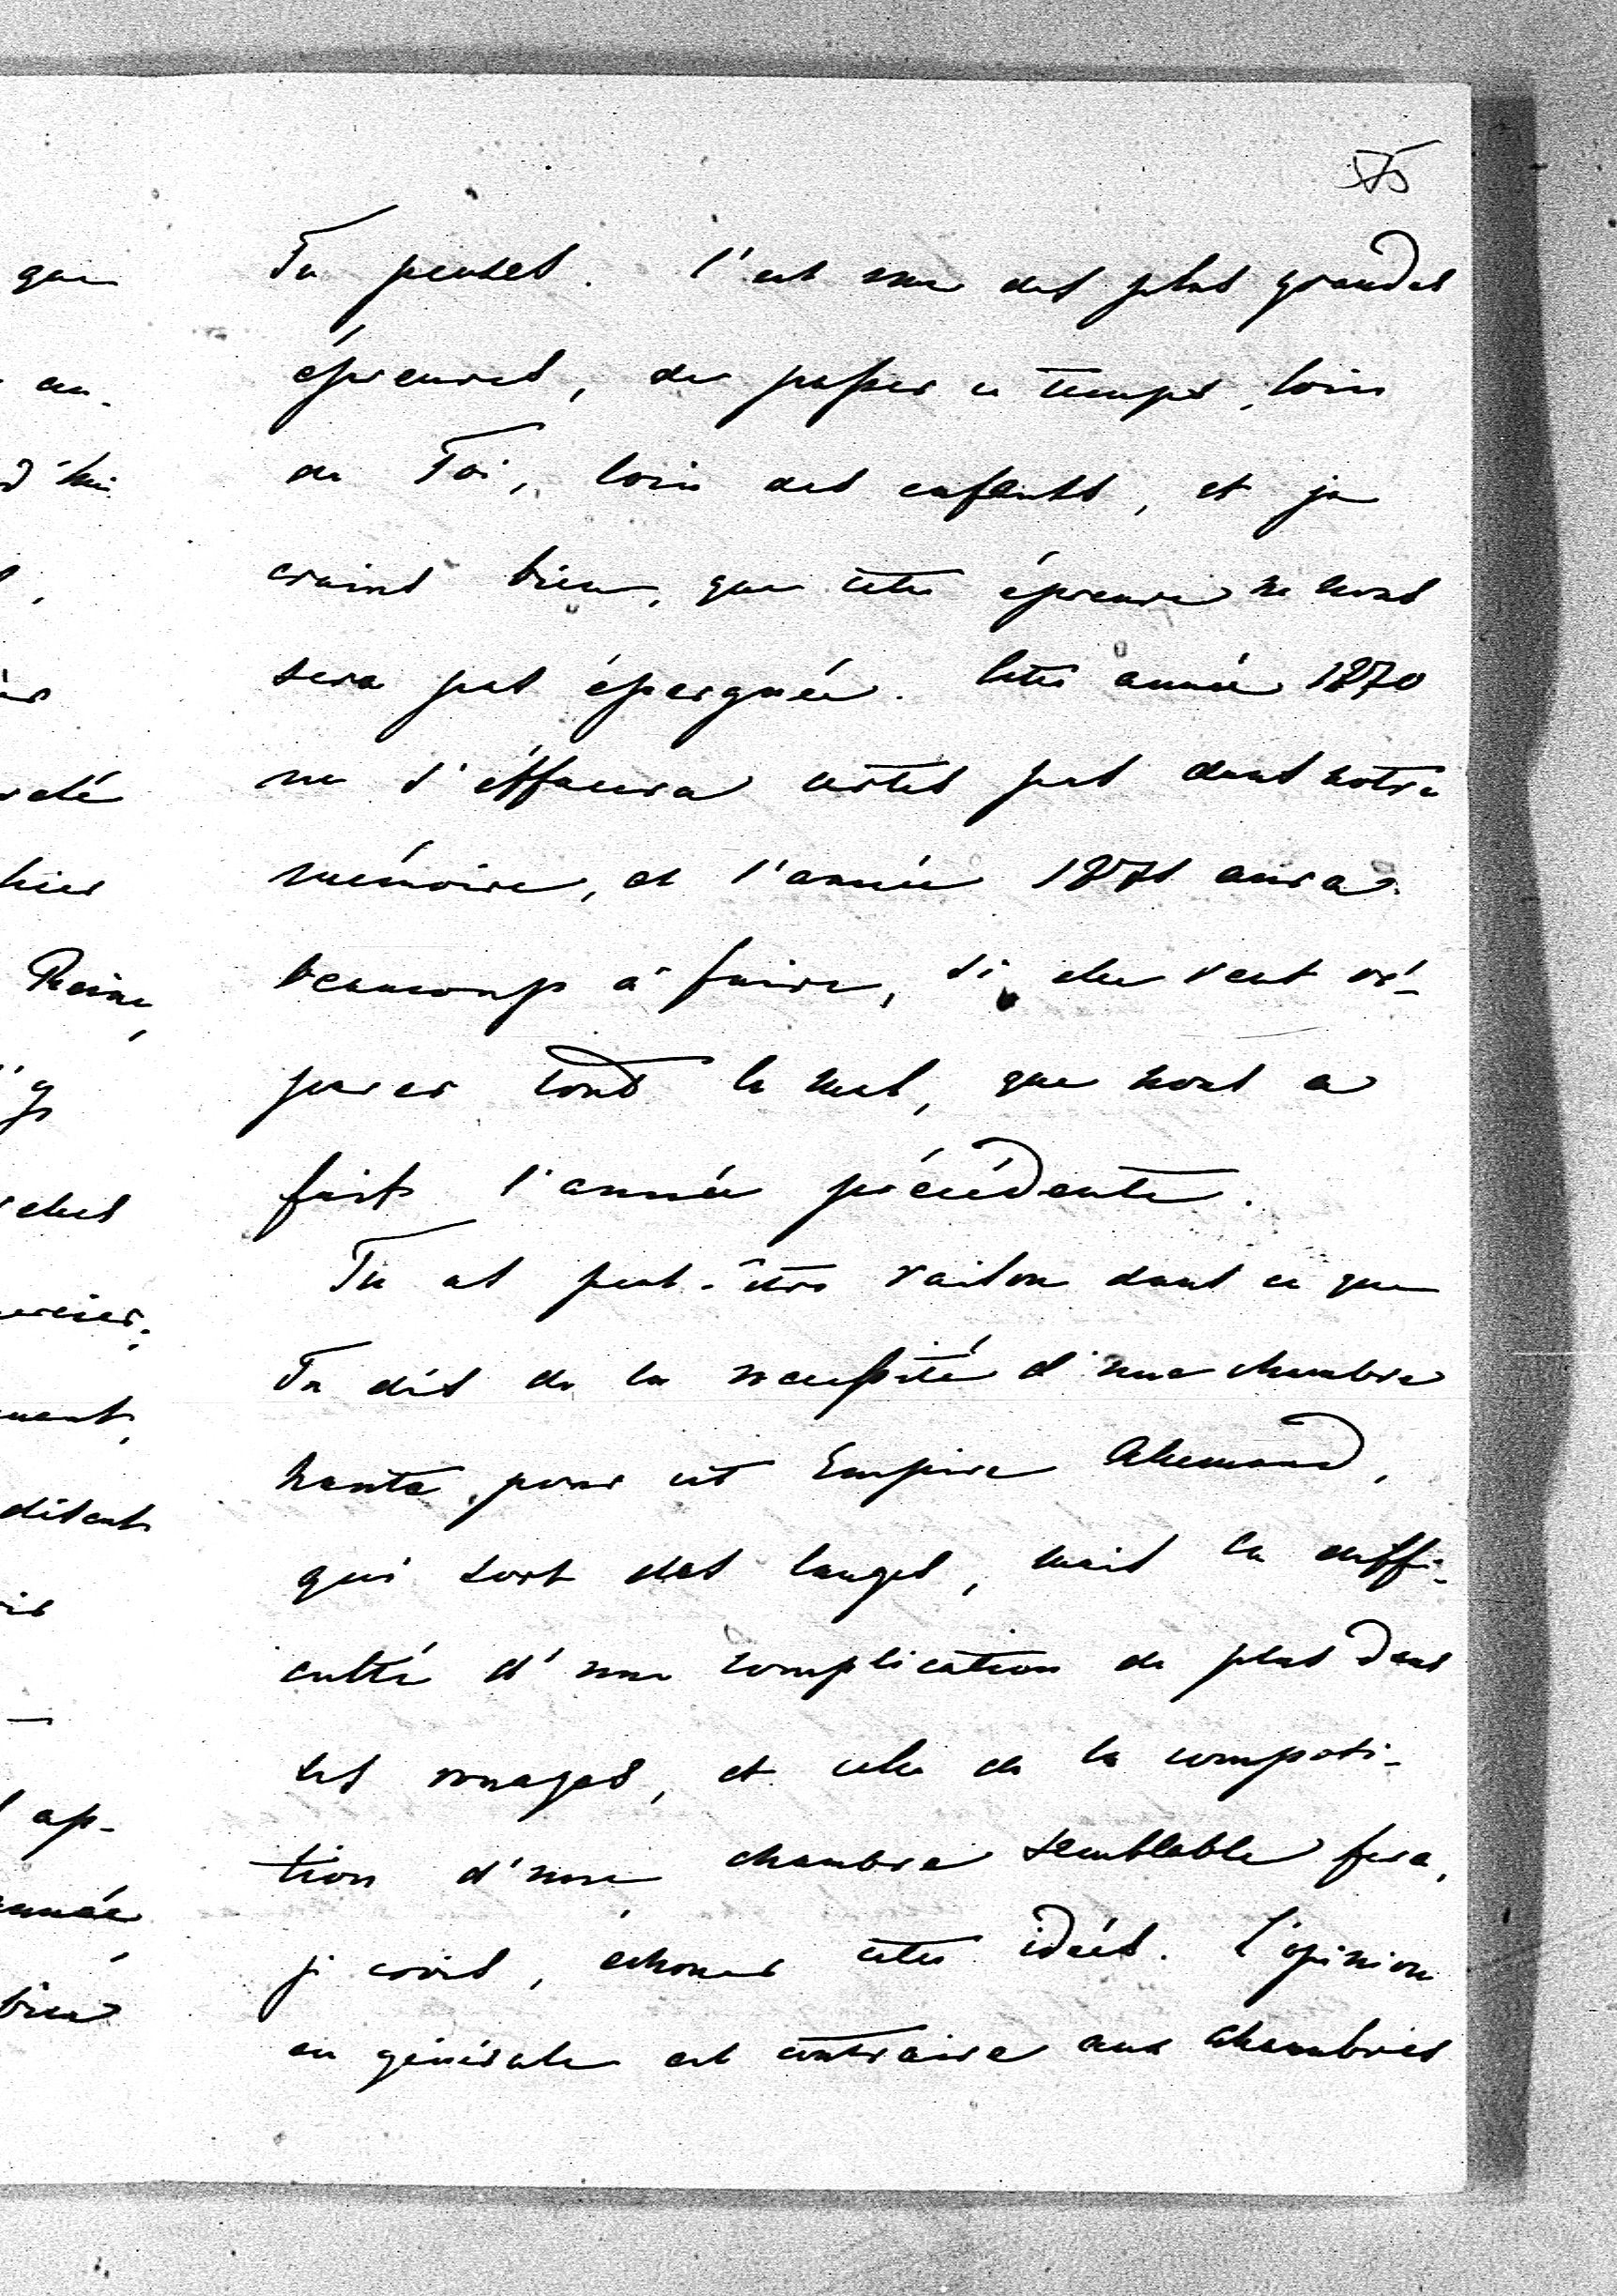 Tu penses. C'est une des plus grandes
épreuves, de passer ce temps, loin
de Toi, loin des enfents, et je
crains bien, que cette épreuve ne nous
sera pas épargnée. Cette année 1870
ne s'éffacera certes pas dans notre
mémoire, et l'année 1871 aura
beaucoup à faire, si elle veut ré-
parer tout le mal, que nous a
fait l'année précédente.
Tu as peut-être raison dans ce que
Tu dis de la necessité d'une chambre
haute pour cet Empire Allemand,
qui sort des langes, mais la diffi-
culté d'une complication de plus dans
les rouages, et celle de la composi-
tion d'une chambre semblable fera,
je crois, échouer cette idée. L'opinion
en générale est contraire aux Chambres
que
au-
d'hui
hier
Reine,
disent
ap-
année,
bien